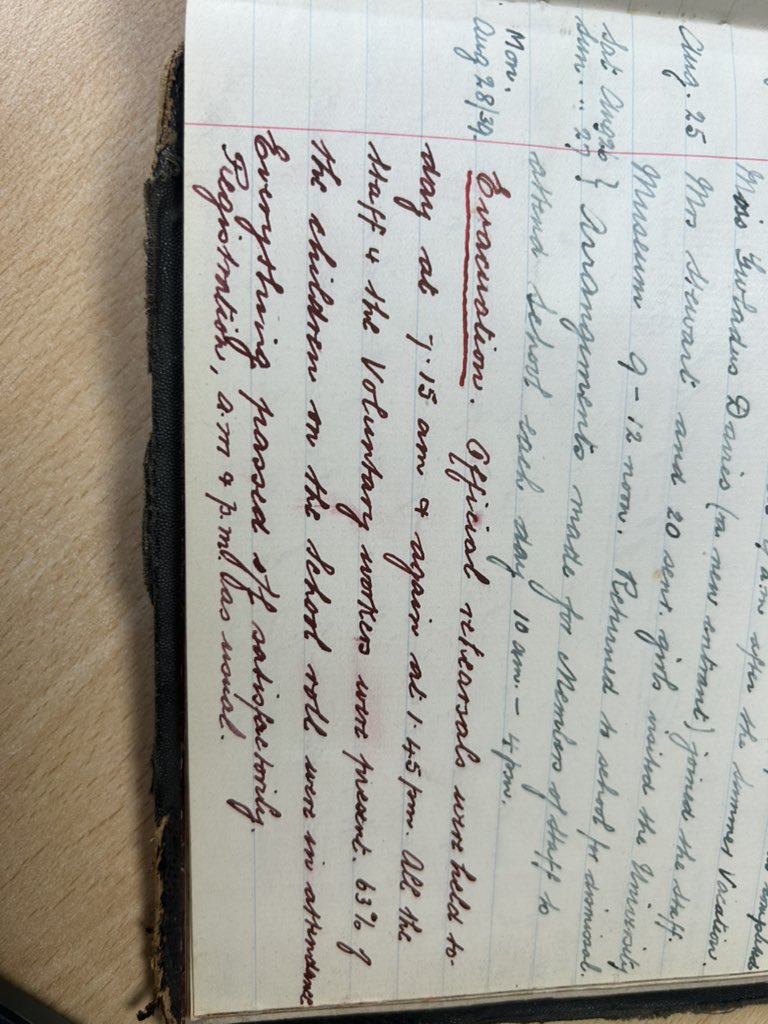 a.m after the Summer Vacation.
Miss Gwladus Davies (a new entrant) joined the staff.
Aug. 25 Mrs Stewart and 20 senr. girls visited the University
Museum 9 - 12 noon. Returned to school for dismissal.
Sat Aug 26 } Arrangements made for Members of Staff to
Sun. " 27 attend School each day 10 am. - 4 pm.
Mon.
Aug 28/39. Evacuation. Official rehearsals were held to-
day at 7.15 am & again at 1.45 pm. All the
staff & the Voluntary workers were present. 63% of
the children on the School roll were in attendance
Everything passed off satisfactorily.
Registration, a.m & p.m. as usual.